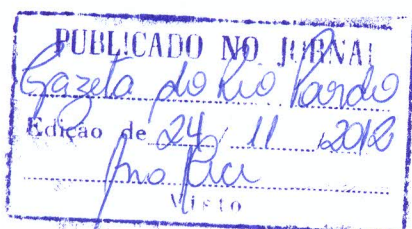 PUBLICADO NO JORNAL
Gazeta do Rio Pardo
Edição de 24 / 11 / 2012
Visto